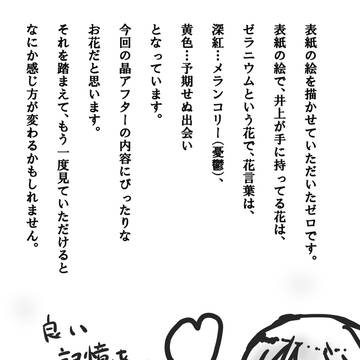 表紙の絵を描かせていただいたゼロです。
表紙の絵で、井上が手に持ってる花は、
ゼラニウムという花で、花言葉は、
深紅…メランコリー（憂鬱）、
黄色…予期せぬ出会い
となっています。
今回の晶アフターの内容にぴったりな
お花だと思います。
それを踏まえて、もう一度見ていただけると
なにか感じ方が変わるかもしれません。
良い
記憶を